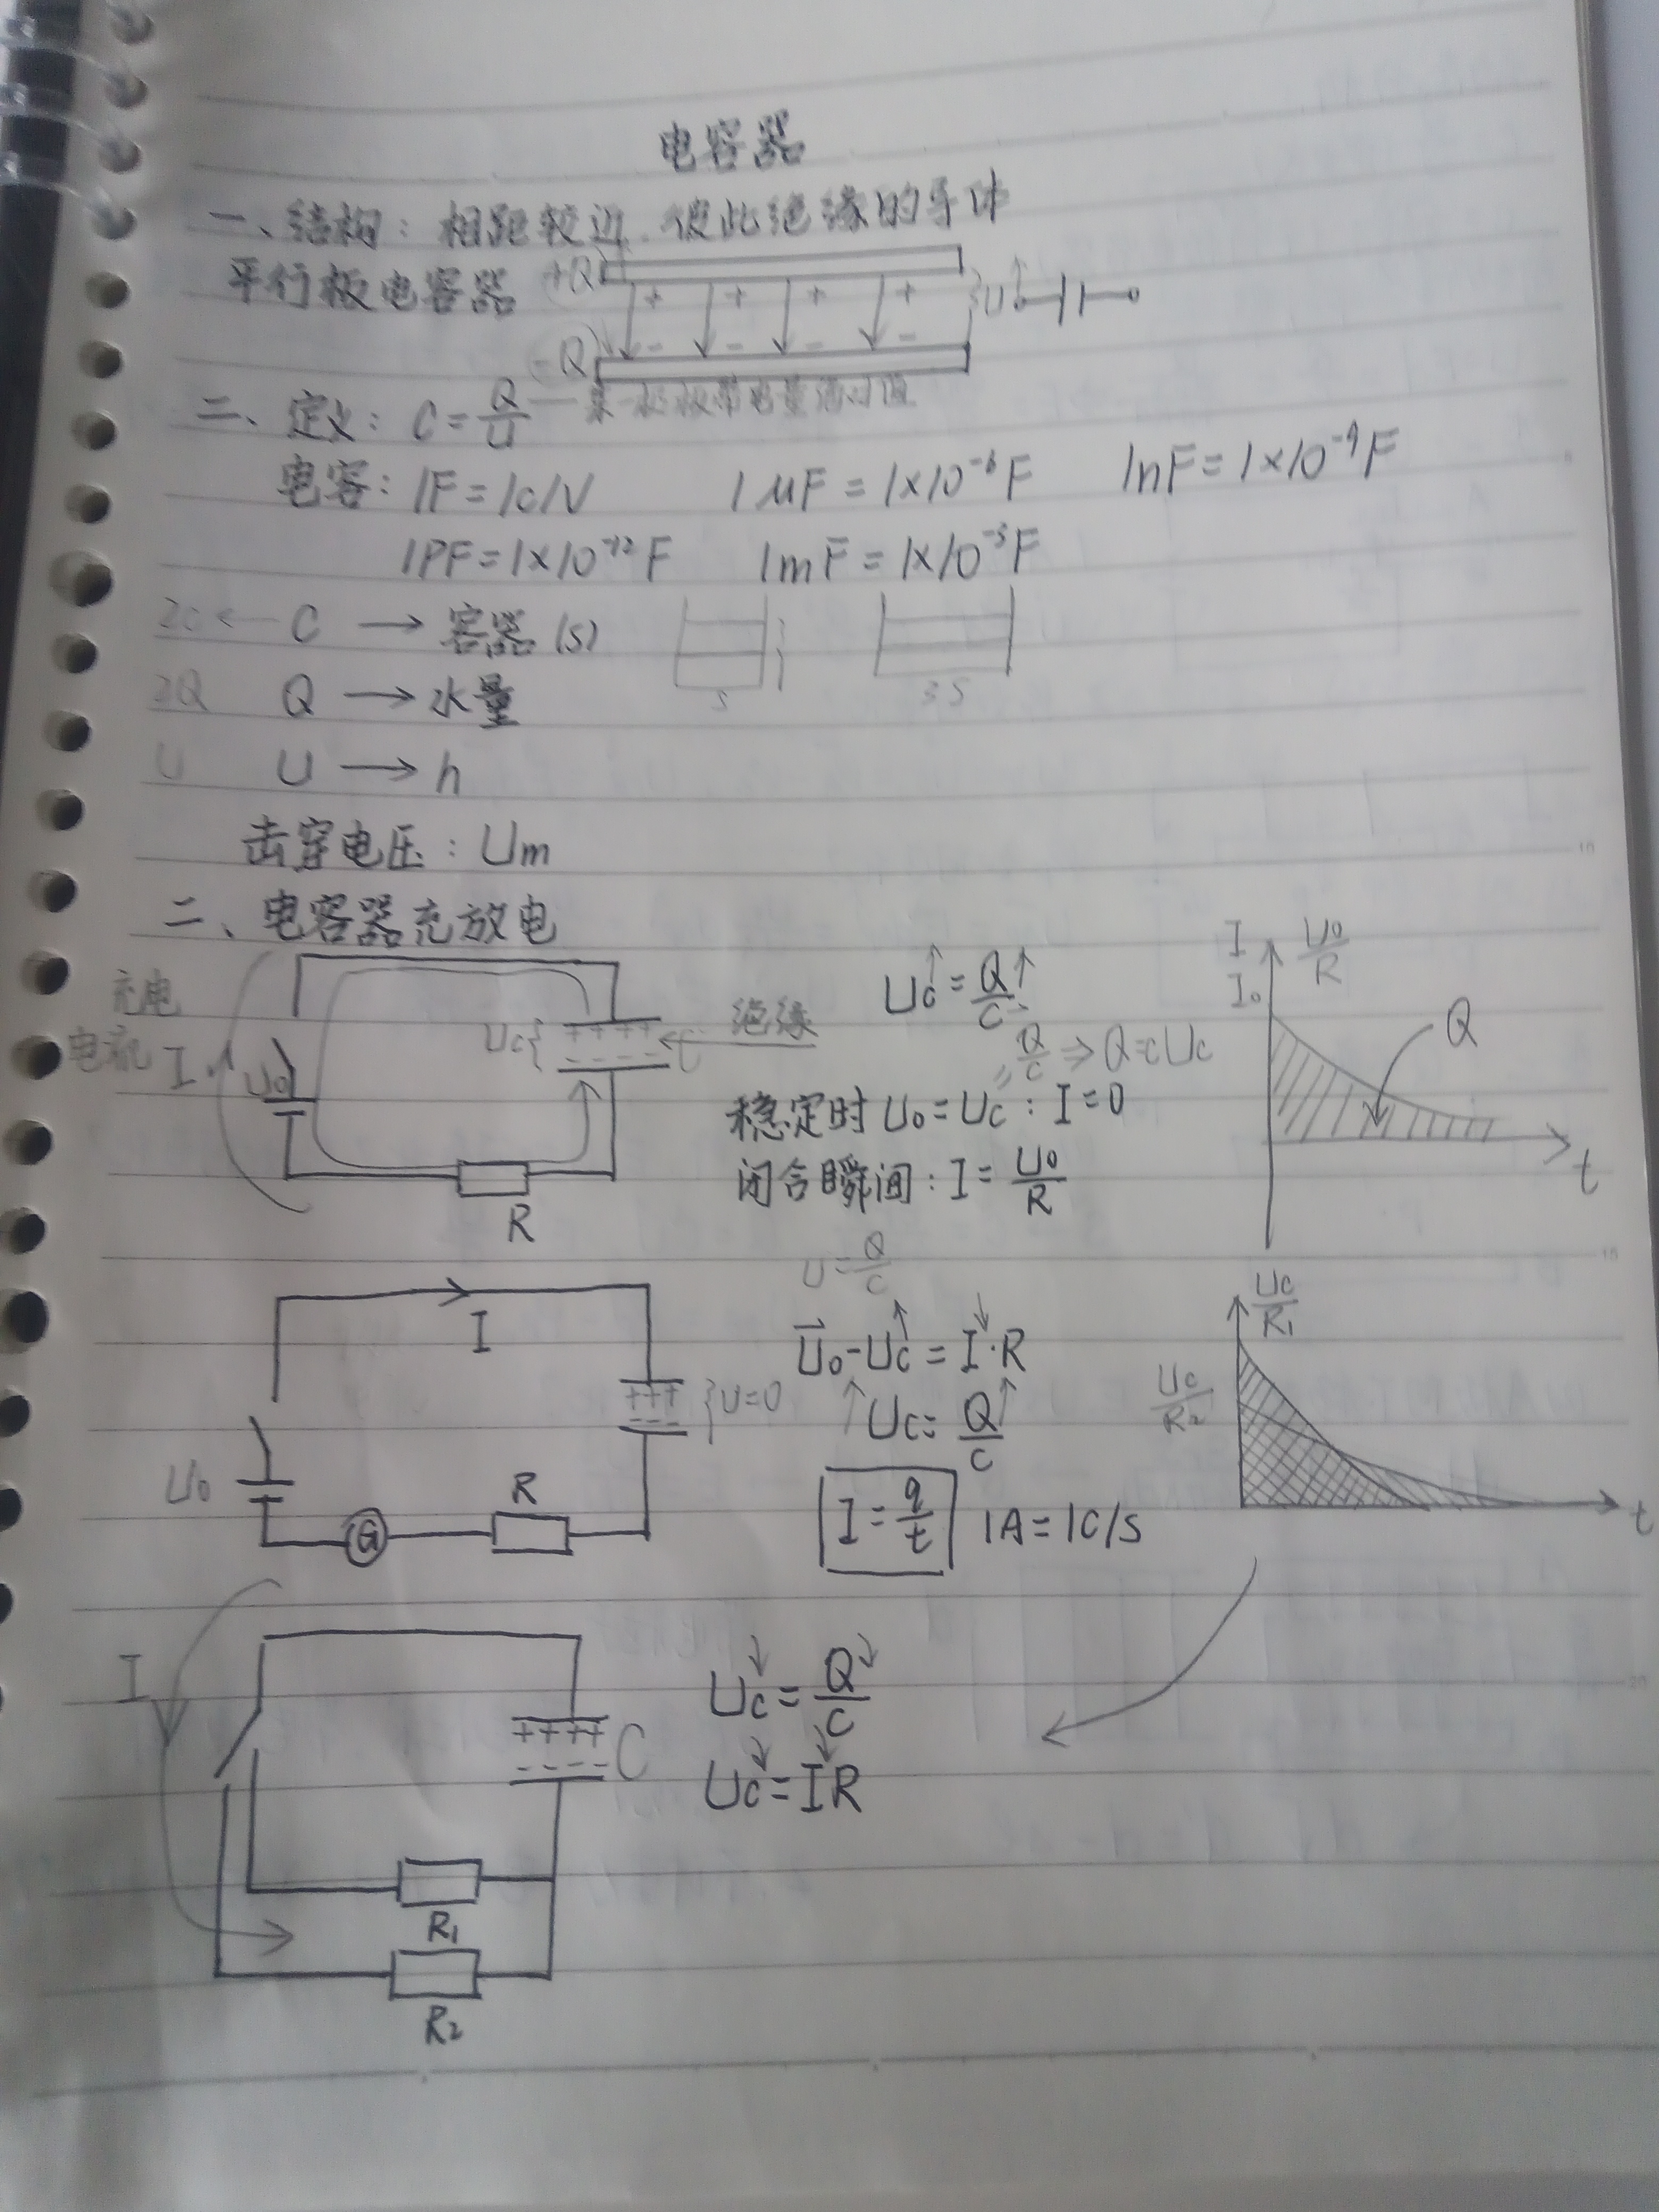 电容器
一、结构：相距较近、彼此绝缘的导体
平行板电容器 +Q + + + + U
-Q - - - -
二、定义：C=Q/U — 某一极板带电量绝对值
电容：1F=1C/V 1μF=1×10⁻⁶F 1nF=1×10⁻⁹F
1PF=1×10⁻¹²F 1mF=1×10⁻³F
2C ← C → 容器(S) S 3S
2Q Q → 水量
U U → h
击穿电压：Um
二、电容器充放电
充电
电流 I U₀ Uc{ ++++ ---- C 绝缘 R
Uc↑=Q↑/C
Q/C ⇒ Q=CUc
稳定时U₀=Uc：I=0
闭合瞬间：I=U₀/R
I U₀/R
I₀ Q t
U=Q/C
I +++ --- }U=0 U₀ G R
U₀-Uc↑=I↓·R
↑Uc=Q↑/C
I=q/t 1A=1C/S
Uc/R₁
Uc/R₂ t
I ++++ ---- C
Uc↓=Q↓/C
Uc↓=I↓R
R₁
R₂